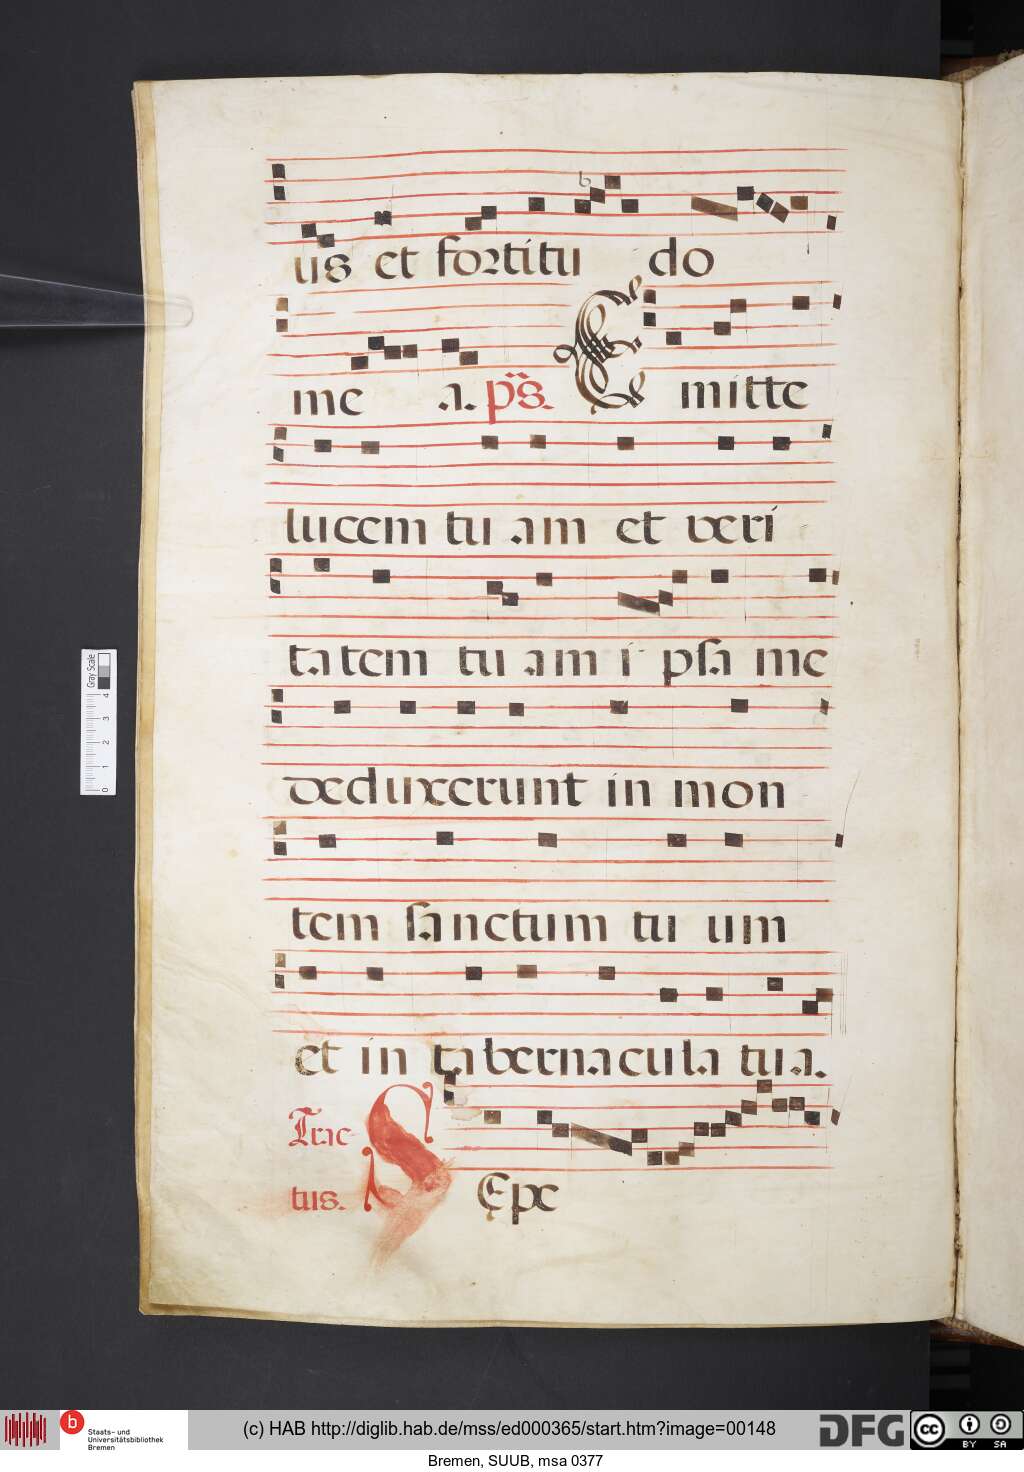 us et fortitu do
me .a. ps. E mitte
lucem tu am et veri
tatem tu am i psa me
deduxerunt in mon
tem sanctum tu um
et in tabernacula tua.
Trac
tus. S Epe
Gray Scale
4 3 2 1 0
b
Staats- und
Universitätsbibliothek
Bremen
(c) HAB http://diglib.hab.de/mss/ed000365/start.htm?image=00148
DFG
cc BY SA
Bremen, SUUB, msa 0377